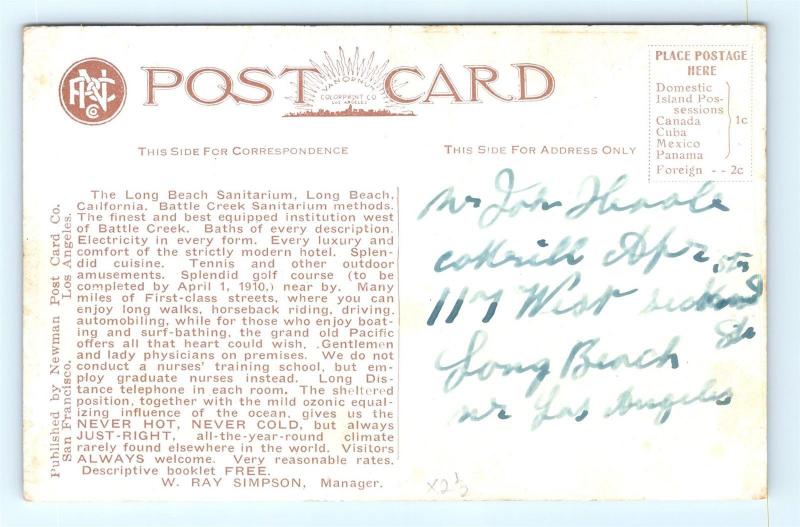 POST CARD
VAN ORNUM
COLORPRINT CO
LOS ANGELES
PLACE POSTAGE
HERE
Domestic
Island Pos-
sessions
Canada
Cuba
Mexico
Panama
1c
Foreign - - 2c
THIS SIDE FOR CORRESPONDENCE
THIS SIDE FOR ADDRESS ONLY
Published by Newman Post Card Co.
San Francisco. Los Angeles.
The Long Beach Sanitarium, Long Beach,
California. Battle Creek Sanitarium methods.
The finest and best equipped institution west
of Battle Creek. Baths of every description.
Electricity in every form. Every luxury and
comfort of the strictly modern hotel. Splen-
did cuisine. Tennis and other outdoor
amusements. Splendid golf course (to be
completed by April 1, 1910,) near by. Many
miles of First-class streets, where you can
enjoy long walks, horseback riding, driving,
automobiling, while for those who enjoy boat-
ing and surf-bathing, the grand old Pacific
offers all that heart could wish. Gentlemen
and lady physicians on premises. We do not
conduct a nurses' training school, but em-
ploy graduate nurses instead. Long Dis-
tance telephone in each room. The sheltered
position, together with the mild ozonic equal-
izing influence of the ocean, gives us the
NEVER HOT, NEVER COLD, but always
JUST-RIGHT, all-the-year-round climate
rarely found elsewhere in the world. Visitors
ALWAYS welcome. Very reasonable rates.
Descriptive booklet FREE.
W. RAY SIMPSON, Manager.
Mr John
117 West
Long Beach
nr Los Angeles
x2½